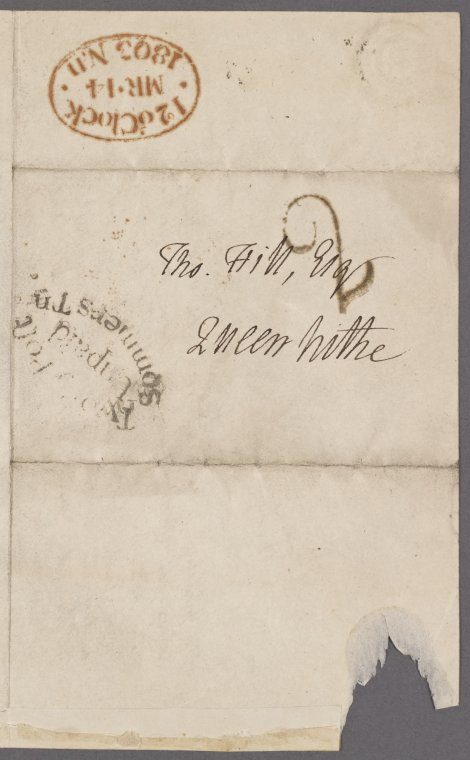 12 o'Clock
MR·14
1803 Nn
2
Tho. Hill, Esq
Queenhithe
Two Py Post
Unpaid
SomersTn